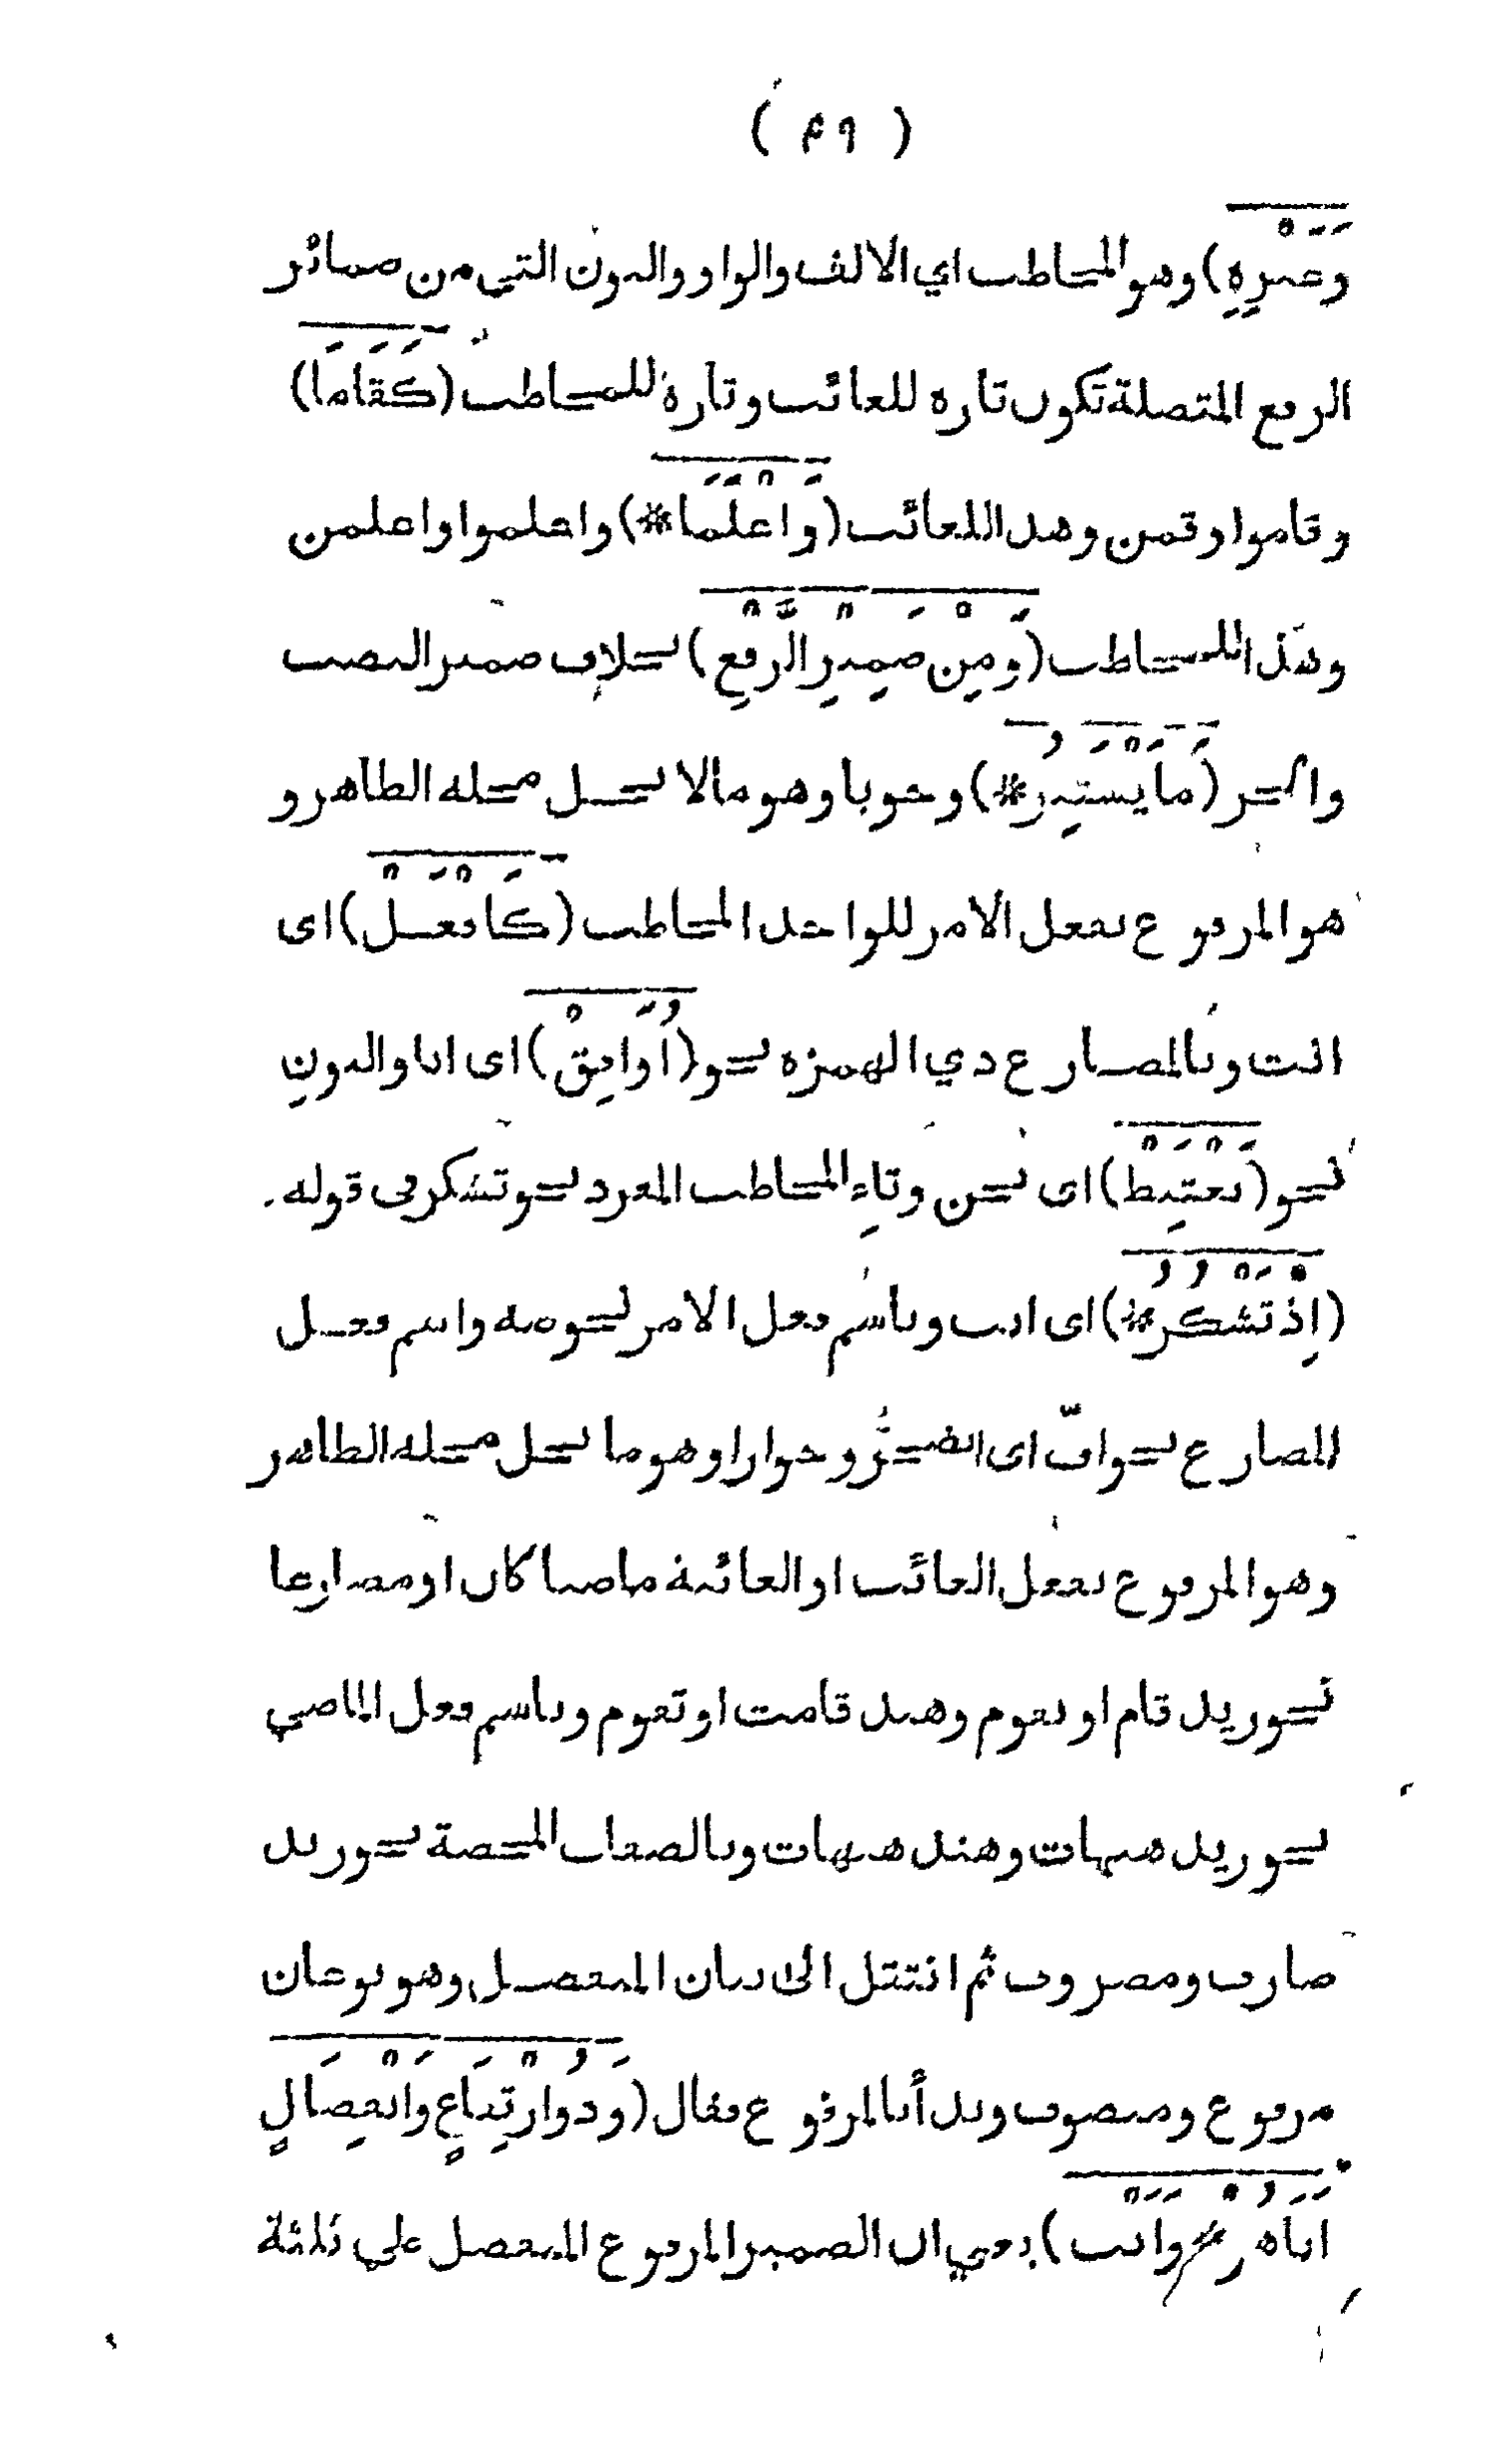 ( ٤٩ )
وَغَيْرِهِ) وهو المخاطب اي الالف والواو والنون التي من ضمائر
الرفع المتصلة تكون تارة للغائب وتارة للمخاطب (كَقَامَا)
وقاموا وقمن وهذا للغائب (وَاعْلَمَا*) واعلموا واعلمن
وهذا للمخاطب (وَمِنْ ضَمِيْرِ الرَّفْعِ) بخلاف ضمير النصب
والجر (مَا يَسْتَتِرُ*) وجوبا وهو ما لا يحل محله الظاهر و
هو المرفوع بفعل الامر للواحد المخاطب (كَافْعَلْ) اى
انت وبالمضارع ذي الهمزة نحو (اُوَافِقْ) اى انا والنونِ
نحو (نَغْتَبِطْ) اى نحن وتاءِ المخاطب المفرد نحو تشكر فى قوله
(اِذْ تَشْكُرُ*) اى انت وباسم فعل الامر نحو صه واسم فعل
المضارع نحو افّ اى اتضجّرُ وجوازا وهو ما يحل محله الظاهر
وهو المرفوع بفعل الغائب او الغائبة ماضيا كان او مضارعا
نحو زيد قام او يقوم وهند قامت او تقوم وباسم فعل الماضي
نحو زيد هيهات وهند هيهات وبالصفات المحضة نحو زيد
ضارب ومضروب ثم انتقل الى بيان المنفصل وهو نوعان
مرفوع ومنصوب وبدأ بالمرفوع فقال (وَذُو ارْتِفَاعٍ وَانْفِصَالٍ
اَنَا هُوْ* وَاَنْتَ) يعني ان الضمير المرفوع المنفصل علي ثلثة